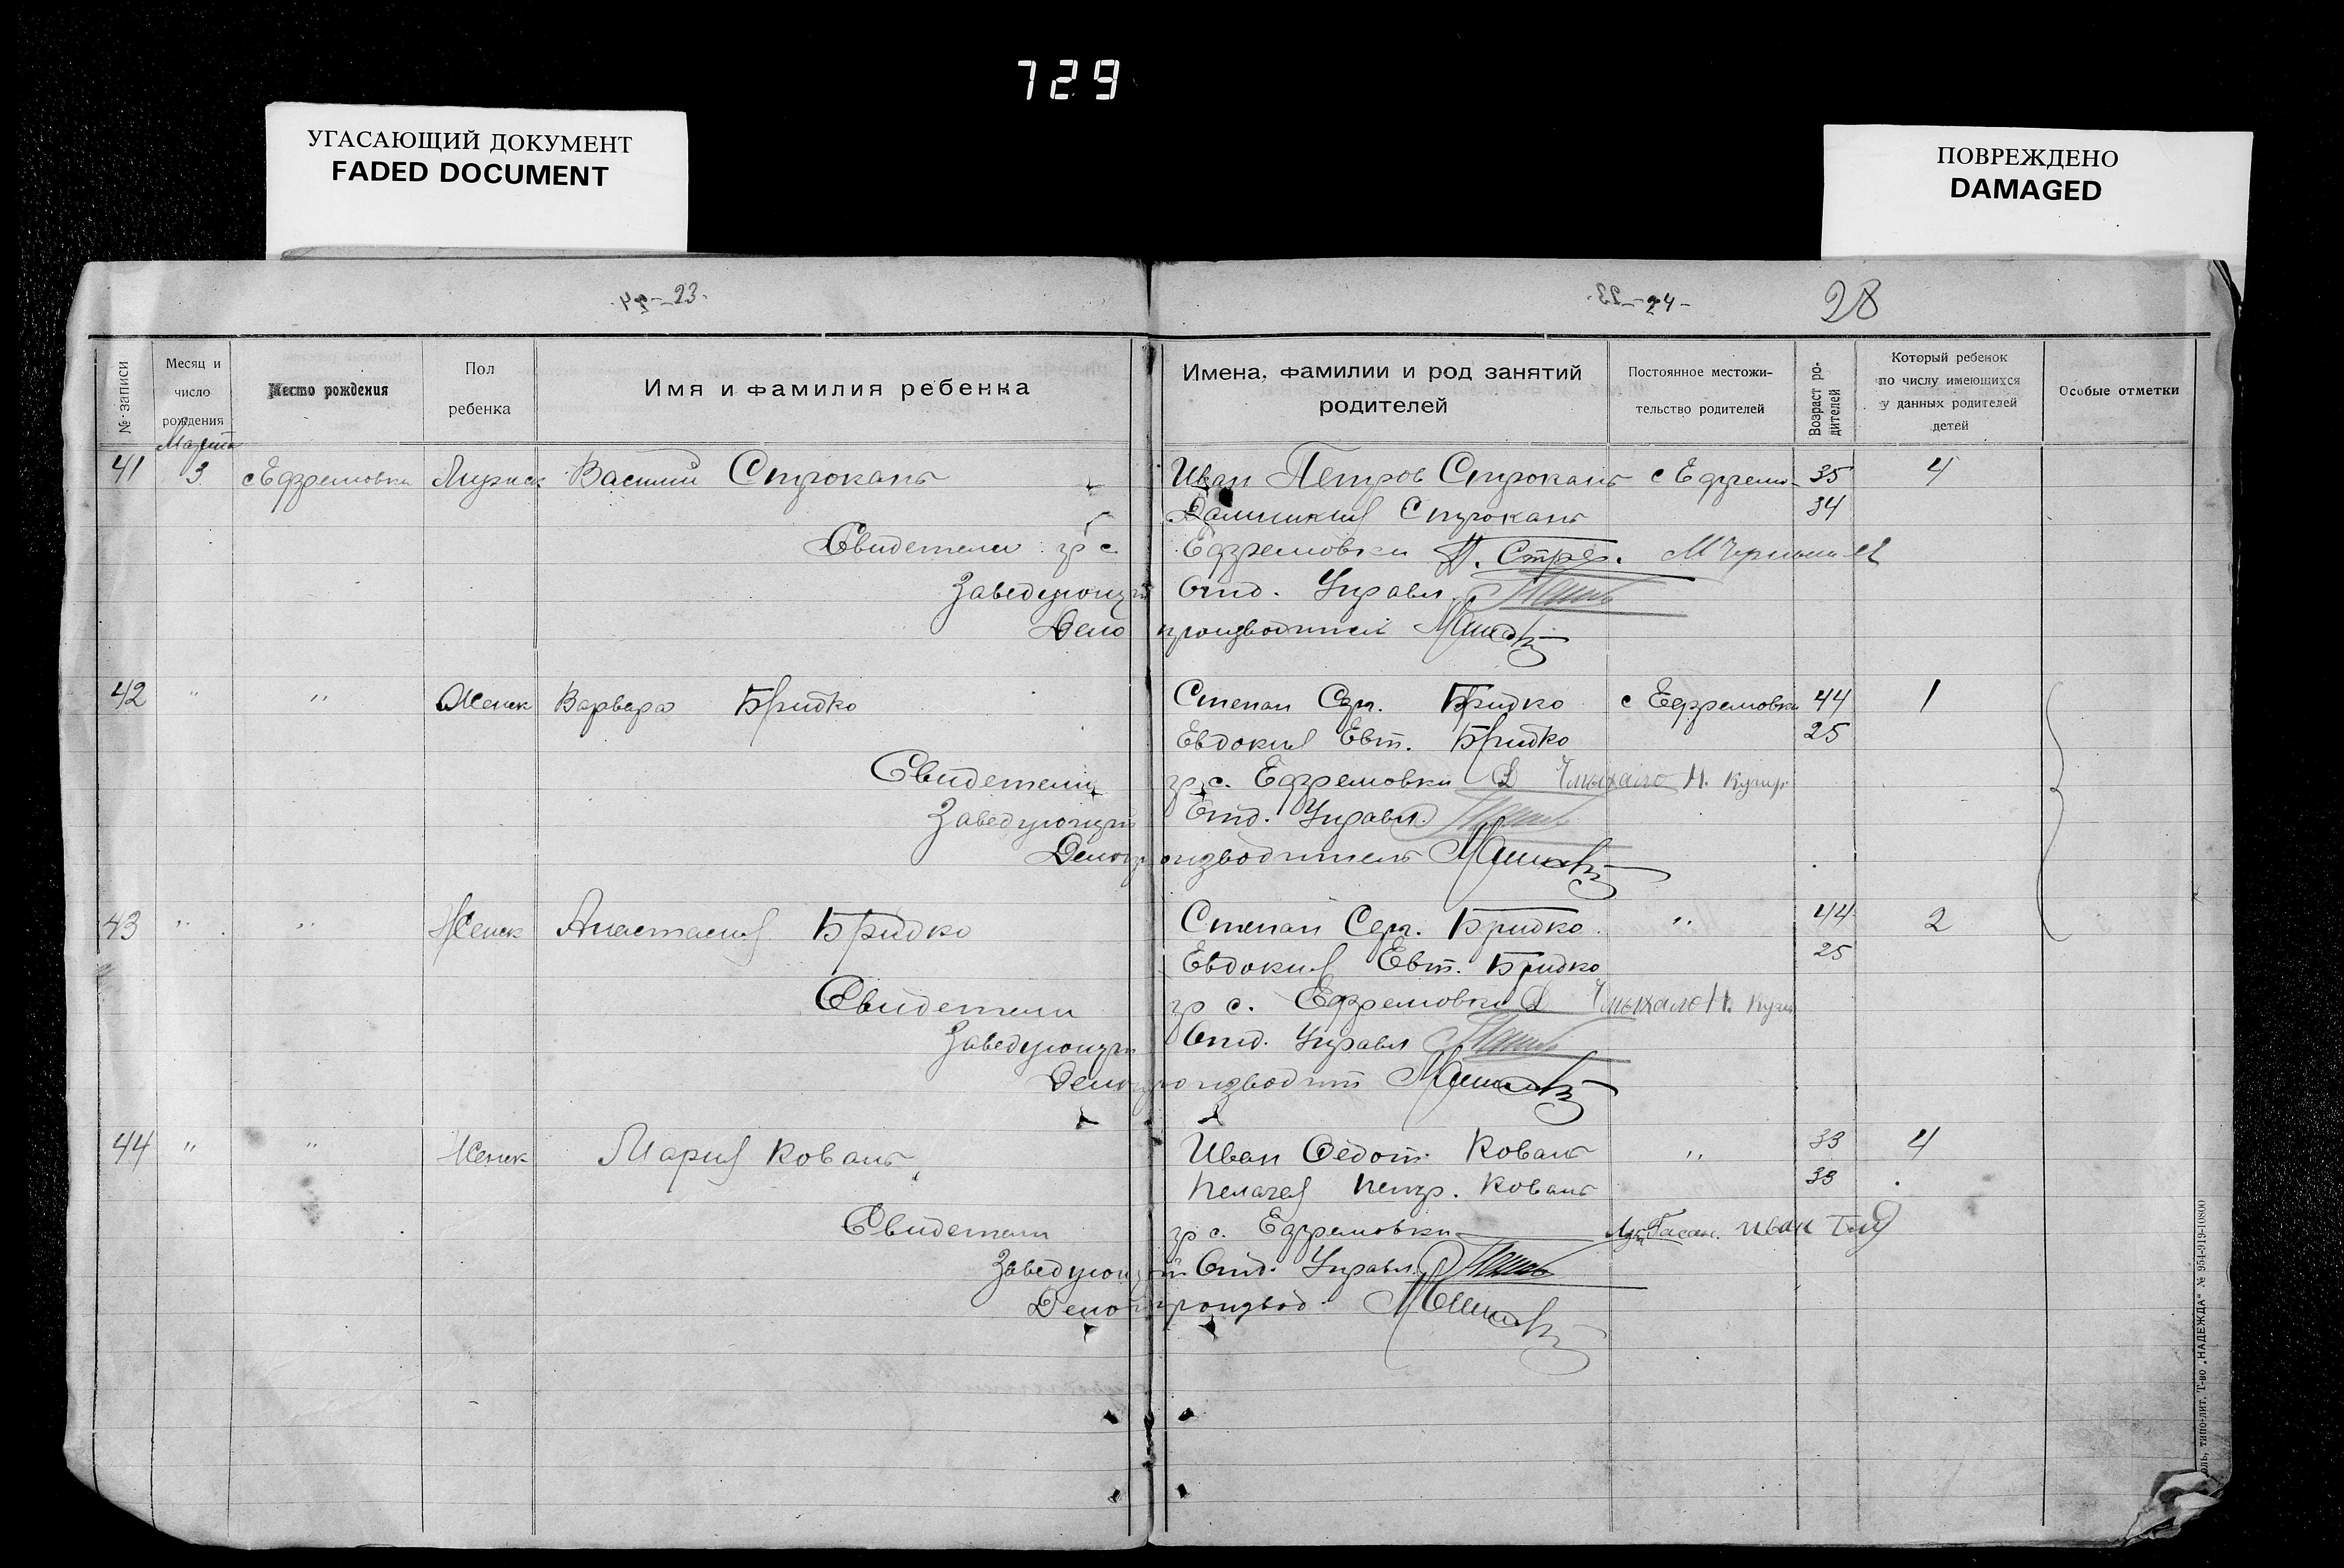 729
УГАСАЮЩИЙ ДОКУМЕНТ
FADED DOCUMENT
ПОВРЕЖДЕНО
DAMAGED
23.
24
28
№ записи
Месяц и число рождения
Место рождения
Пол ребенка
Имя и фамилия ребенка
Имена, фамилии и род занятий родителей
Постоянное местожительство родителей
Возраст родителей
Который ребенок по числу имеющихся у данных родителей детей
Особые отметки
Марта
41 3 с Ефремовка Мужск Василий Строкань Иван Петров Строкань с Ефремо- 35 4
Строкань 34
Свидетели гр с Ефремовки
Заведующий Отд. Управл.
Делопроизводитель
42 " " Женск Варвара Бридко Степан Сер. Бридко с Ефремовки 44 1
Евдокия Евт. Бридко 25
Свидетели гр с. Ефремовки Д
Заведующий Отд. Управл.
Делопроизводитель
43 " " Женск Анастасия Бридко Степан Сер. Бридко " 44 2
Евдокия Евт. Бридко 25
Свидетели гр с. Ефремовки Д
Заведующий Отд. Управл
Делопроизводит
44 " " Женск Мария Коваль Иван Федот. Коваль " 33 4
Пелагея Петр. Коваль 33
Свидетели гр с. Ефремовки Иван
Заведующий Отд. Управл.
Делопроизвод.
типо-лит. Т-во „НАДЕЖДА" № 954-919-10800